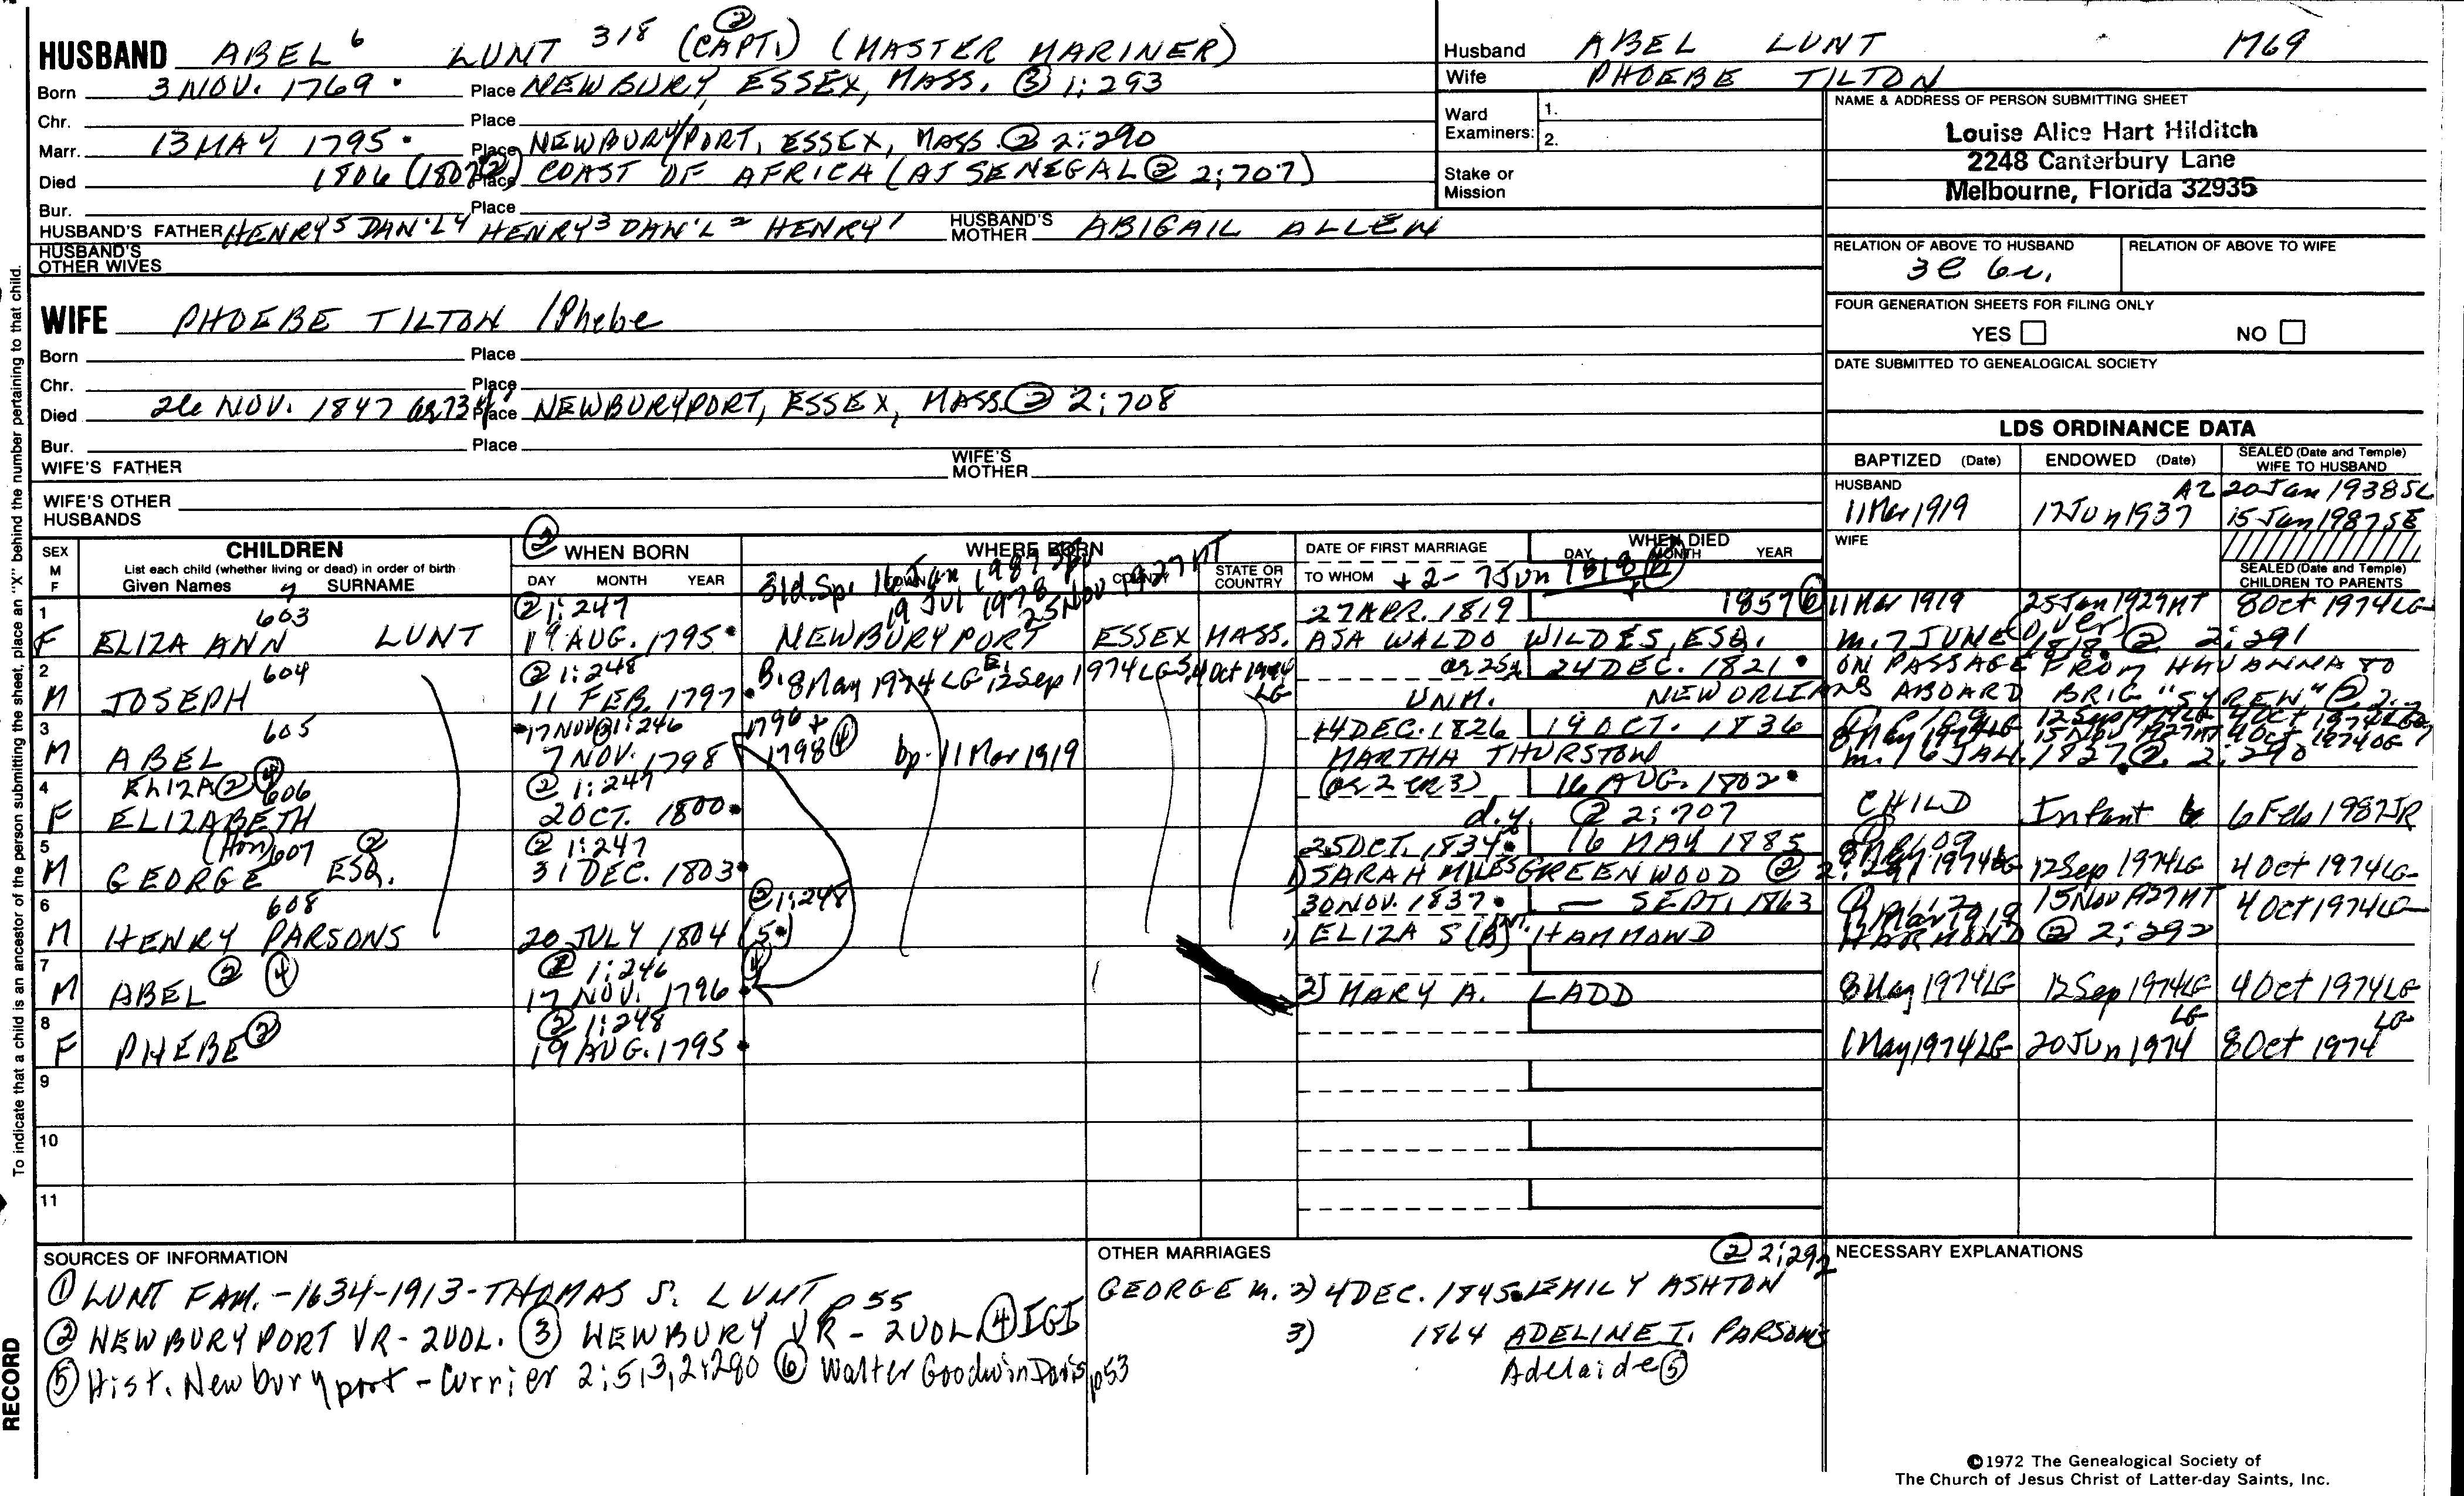 HUSBAND ABEL 6 LUNT 318 (CAPT.) ② (MASTER MARINER)
Born 3 NOV. 1769 • Place NEWBURY, ESSEX, MASS. ③ 1:293
Chr. Place
Marr. 13 MAY 1795 • Place NEWBURYPORT, ESSEX, MASS. ② 2:290
Died 1806 (1807②) Place COAST OF AFRICA (AT SENEGAL ② 2:707)
Bur. Place
HUSBAND'S FATHER HENRY5 DAN'L4 HENRY3 DAN'L2 HENRY1 HUSBAND'S MOTHER ABIGAIL ALLEN
HUSBAND'S OTHER WIVES
WIFE PHOEBE TILTON /Phebe
Born Place
Chr. Place
Died NOV. 1847 Place NEWBURYPORT, ESSEX, MASS. ② 2:708
Bur. Place
WIFE'S FATHER WIFE'S MOTHER
WIFE'S OTHER HUSBANDS
Husband ABEL LUNT 1769
Wife PHOEBE TILTON
Ward Examiners: 1. 2.
Stake or Mission
NAME & ADDRESS OF PERSON SUBMITTING SHEET
Louise Alice Hart Hilditch
2248 Canterbury Lane
Melbourne, Florida 32935
RELATION OF ABOVE TO HUSBAND RELATION OF ABOVE TO WIFE
FOUR GENERATION SHEETS FOR FILING ONLY
YES NO
DATE SUBMITTED TO GENEALOGICAL SOCIETY
LDS ORDINANCE DATA
BAPTIZED (Date) ENDOWED (Date) SEALED (Date and Temple) WIFE TO HUSBAND
HUSBAND
11 Mar 1919 17 Jun 1937 AZ 20 Jan 1938 SL
15 Jan 1987 SE
WIFE
SEALED (Date and Temple) CHILDREN TO PARENTS
SEX M F CHILDREN
List each child (whether living or dead) in order of birth
Given Names SURNAME
② WHEN BORN DAY MONTH YEAR
WHERE BORN COUNTY STATE OR COUNTRY
DATE OF FIRST MARRIAGE TO WHOM
WHEN DIED DAY MONTH YEAR
+ 2 - 7 Jun 1818
19 Jul 1978
25 Nov 1927 MT
1 603 ② 1:247 27 APR. 1819 1857 ⑥ 11 Mar 1919 25 Jan 1929 MT 8 Oct 1974 LG
F ELIZA ANN LUNT 19 AUG. 1795 • NEWBURYPORT ESSEX MASS. ASA WALDO WILDES, ESQ. m. 7 JUNE 1818 ② 2:291
(over)
2 604 ② 1:248 B. 8 May 1974 LG E. 12 Sep 1974 LG S. 4 Oct 1974 LG 24 DEC. 1821 • ON PASSAGE FROM HAVANNA TO
M JOSEPH 11 FEB. 1797 • UNM. NEW ORLEANS ABOARD BRIG "SYREN" ②
3 605 • 17 NOV ② 1:246 1796 + 14 DEC. 1826 19 OCT. 1836
M ABEL 7 NOV. 1798 1798 ④ bp. 11 Mar 1919 MARTHA THURSTON m. 16 JAN. 1827 ② 2:290
4 ELIZA ② ④ 606 ② 1:247 (as 2 or 3) 16 AUG. 1802 •
F ELIZABETH 20 OCT. 1800 • d.y. ② 2:707 CHILD Infant 6 Feb 1987 JR
5 (Hon) 607 ② ② 1:247 25 OCT. 1834 • 16 MAY 1885
M GEORGE ESQ. 31 DEC. 1803 • 1) SARAH MILES GREENWOOD ② 12 Sep 1974 LG 4 Oct 1974 LG
6 608 ② 1:248 30 NOV. 1837 • — SEPT. 1863 15 Nov 1927 MT 4 Oct 1974 LG
M HENRY PARSONS 20 JULY 1804 (5•) 1) ELIZA S (B) INT. HAMMOND HARMOND ② 2:292
7 ② ④ ② 1:246 ④
M ABEL 17 NOV. 1796 • 2) MARY A. LADD 8 May 1974 LG 12 Sep 1974 LG 4 Oct 1974 LG
8 ② ② 1:248
F PHEBE 19 AUG. 1795 • 1 May 1974 LG 20 Jun 1974 LG 8 Oct 1974 LG
9
10
11
SOURCES OF INFORMATION
① LUNT FAM. - 1634-1913 - THOMAS S. LUNT p 55
② NEWBURYPORT VR - 2 VOL. ③ NEWBURY VR - 2 VOL. ④ IGI
⑤ Hist. Newburyport - Currier 2:513, 2:280 ⑥ Walter Goodwin Davis p 53
OTHER MARRIAGES
② 2:292
GEORGE m. 2) 4 DEC. 1845 • EMILY ASHTON
3) 1864 ADELINE T. PARSONS
Adelaide ⑤
NECESSARY EXPLANATIONS
To indicate that a child is an ancestor of the person submitting the sheet, place an "X" behind the number pertaining to that child.
RECORD
©1972 The Genealogical Society of
The Church of Jesus Christ of Latter-day Saints, Inc.